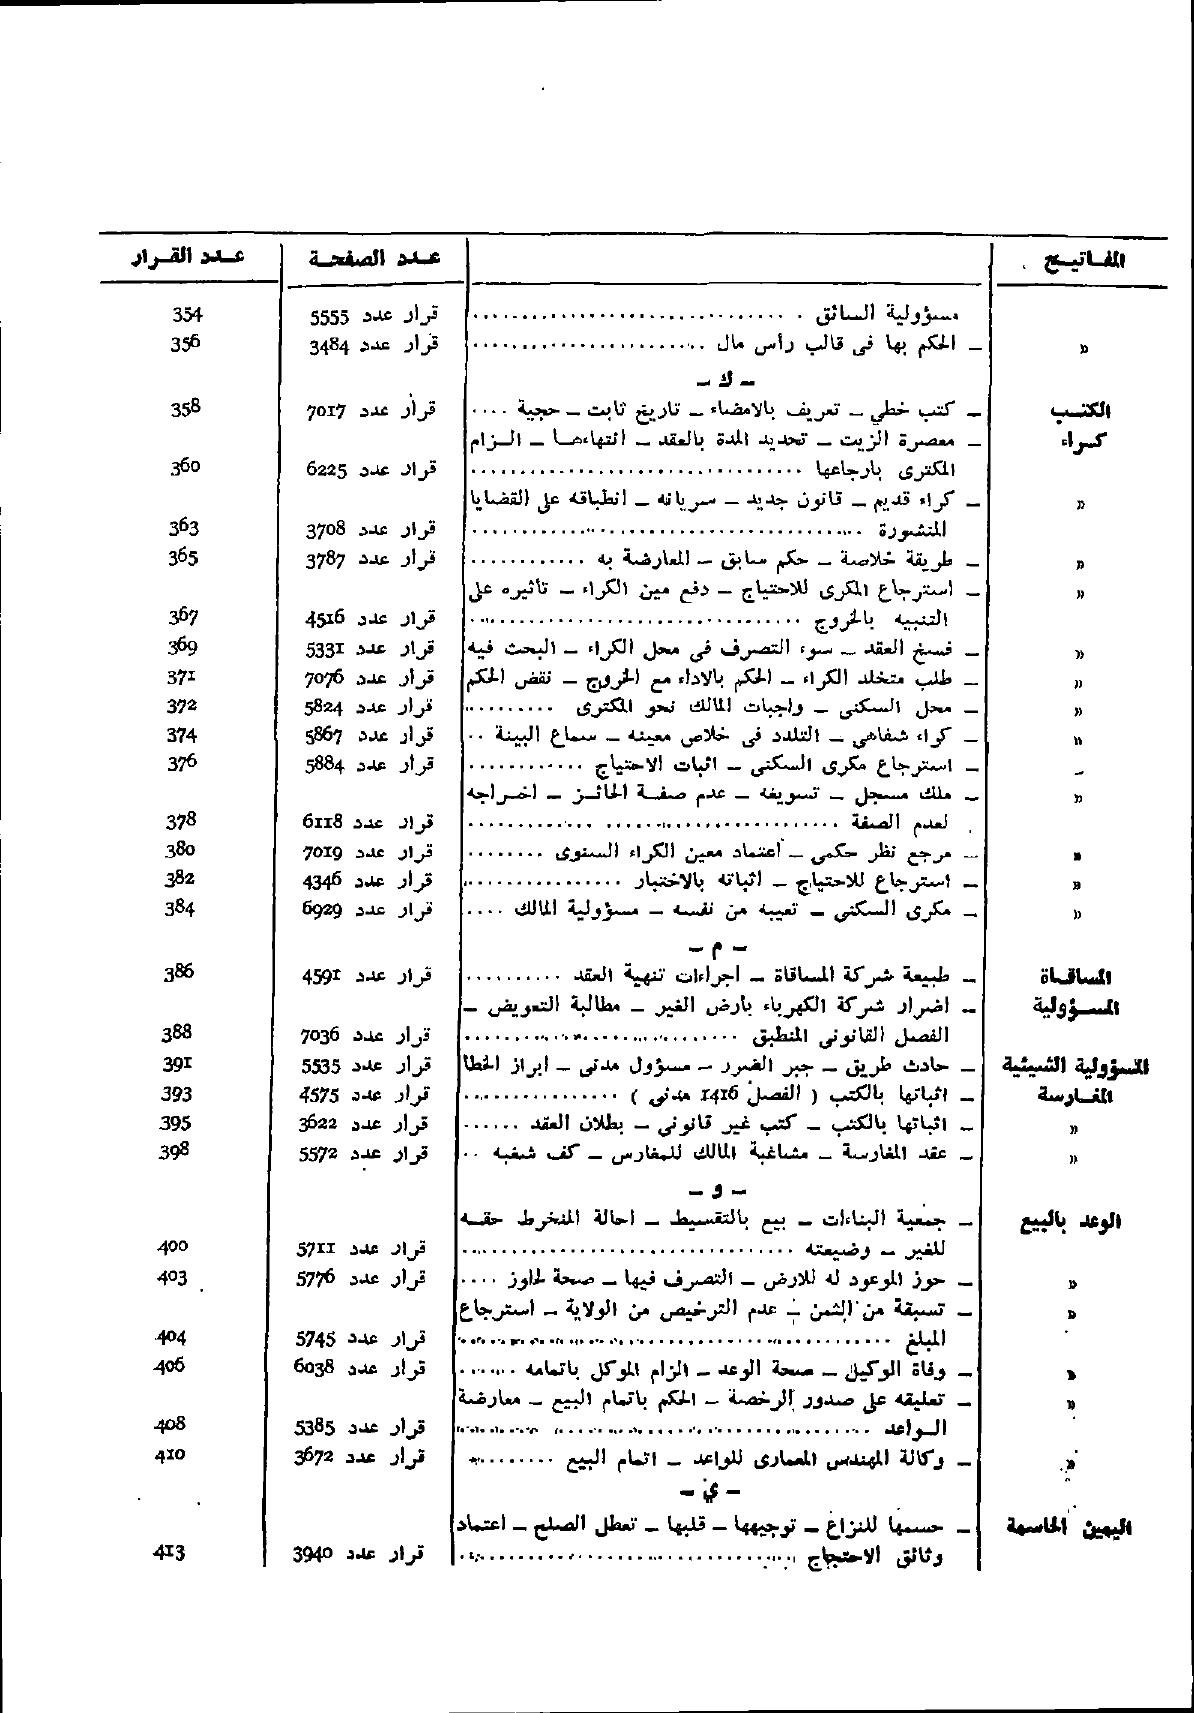 المفاتيح عدد الصفحة عدد القرار
مسؤولية السائق .................... قرار عدد 5555 354
» – الحكم بها فى قالب رأس مال .................... قرار عدد 3484 356
– ك –
الكتب – كتب خطي – تعريف بالامضاء – تاريخ ثابت – حجية .... قرار عدد 7017 358
كراء – معصرة الزيت – تحديد المدة بالعقد – انتهاءها – الزام
المكترى بارجاعها .................... قرار عدد 6225 360
» – كراء قديم – قانون جديد – سريانه – انطباقه على القضايا
المنشورة .................... قرار عدد 3708 363
» – طريقة خلاصة – حكم سابق – المعارضة به ............ قرار عدد 3787 365
» – استرجاع المكرى للاحتياج – دفع مين الكراء – تأثيره على
التنبيه بالخروج .................... قرار عدد 4516 367
» – فسخ العقد – سوء التصرف فى محل الكراء – البحث فيه قرار عدد 5331 369
» – طلب متخلد الكراء – الحكم بالاداء مع الخروج – نقض الحكم قرار عدد 7076 371
» – محل السكنى – واجبات المالك نحو المكترى .......... قرار عدد 5824 372
» – كراء شفاهي – التلدد فى خلاص معينه – سماع البينة .. قرار عدد 5867 374
– استرجاع مكرى السكنى – اثبات الاحتياج ............ قرار عدد 5884 376
» – ملك مسجل – تسويغه – عدم صفة الحائز – اخراجه
لعدم الصفة .................... قرار عدد 6118 378
» – مرجع نظر حكمى – اعتماد معين الكراء السنوى ........ قرار عدد 7019 380
» – استرجاع للاحتياج – اثباته بالاختبار ................ قرار عدد 4346 382
» – مكرى السكنى – تعيبه من نفسه – مسؤولية المالك .... قرار عدد 6929 384
– م –
المساقاة – طبيعة شركة المساقاة – اجراءات تنهية العقد .......... قرار عدد 4591 386
المسؤولية – اضرار شركة الكهرباء بارض الغير – مطالبة التعويض –
الفصل القانونى المنطبق .................... قرار عدد 7036 388
المسؤولية الشيئية – حادث طريق – جبر الضرر – مسؤول مدنى – ابراز الخطا قرار عدد 5535 391
المغارسة – اثباتها بالكتب ( الفصل 1416 مدنى ) ................ قرار عدد 4575 393
» – اثباتها بالكتب – كتب غير قانونى – بطلان العقد ...... قرار عدد 3622 395
» – عقد المغارسة – مشاغبة المالك للمغارس – كف شغبه .. قرار عدد 5572 398
– و –
الوعد بالبيع – جمعية البناءات – بيع بالتقسيط – احالة المنخرط حقه
للغير – وضيعته .................... قرار عدد 5711 400
» – حوز الموعود له للارض – التصرف فيها – صحة لحاوز .... قرار عدد 5776 403
» – تسبقة من الثمن – عدم الترخيص من الولاية – استرجاع
المبلغ .................... قرار عدد 5745 404
» – وفاة الوكيل – صحة الوعد – الزام الموكل باتمامه ...... قرار عدد 6038 406
» – تعليقه على صدور الرخصة – الحكم باتمام البيع – معارضة
الواعد .................... قرار عدد 5385 408
» – وكالة المهندس المعمارى للواعد – اتمام البيع .......... قرار عدد 3672 410
– ي –
اليمين الحاسمة – حسمها للنزاع – توجيهها – قلبها – تعطل الصلح – اعتماد
وثائق الاحتجاج .................... قرار عدد 3940 413